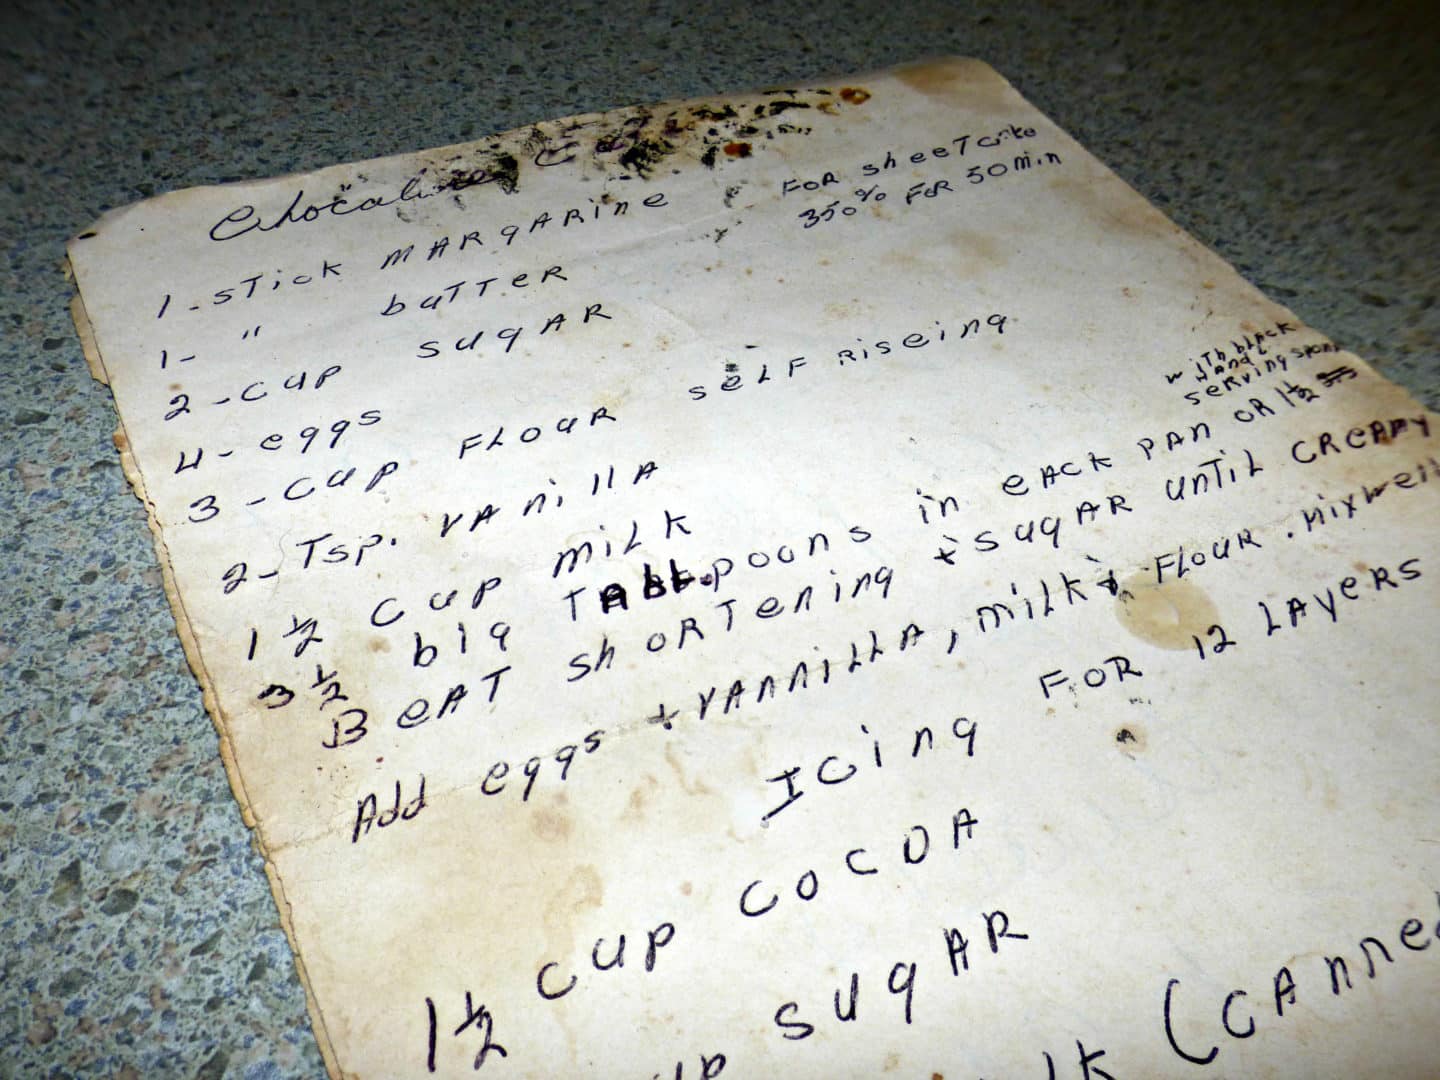 Chocolate
FOR sheeTcake
350% FOR 50 Min
1-sTick MARgARine
1- " buTTeR
2-cup sugAR
4-eggs
3-cup FLouR seLF Riseing
2-Tsp. VAnillA
1 1/2 cup miLk
wiTh black
HAndL
seRving spoon
3 1/2 big TAbl.spoons in eAck pAn OR 1 1/2
BeAT shoRTening + sugAR unTiL CReAmy
Add eggs + VAnniLLA, milk + FLouR. Mix well
Icing FOR 12 LAyeRs
1 1/2 cup cocoA
sugAR
(CAnned